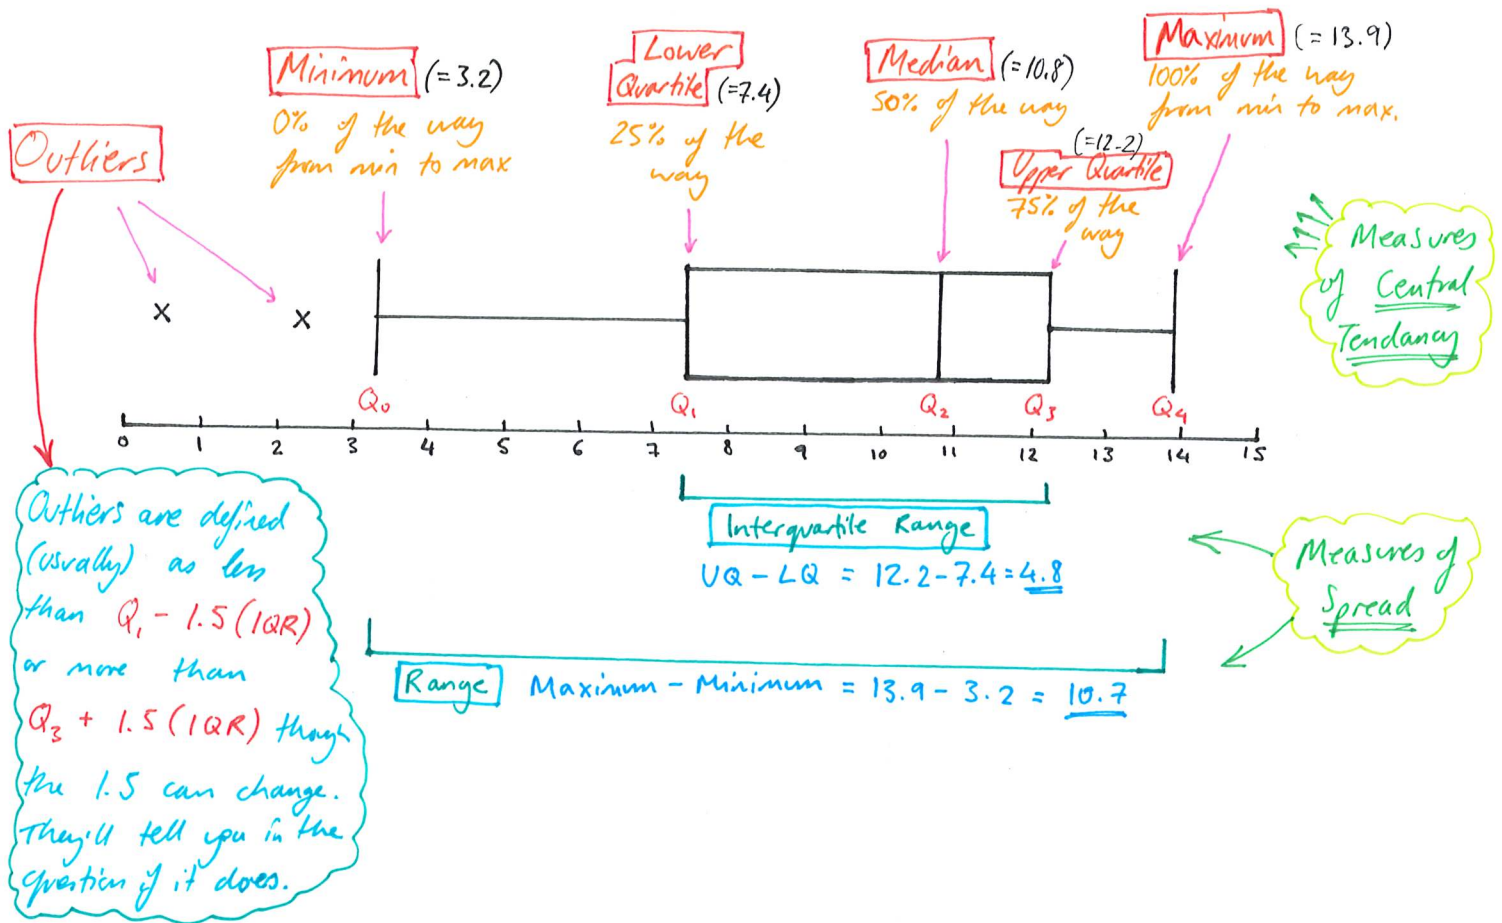 Outliers
Minimum (=3.2)
0% of the way
from min to max
Lower
Quartile (=7.4)
25% of the
way
Median (=10.8)
50% of the way
(=12.2)
Upper Quartile
75% of the
way
Maximum (=13.9)
100% of the way
from min to max.
Measures
of Central
Tendancy
x x
Q₀ Q₁ Q₂ Q₃ Q₄
0 1 2 3 4 5 6 7 8 9 10 11 12 13 14 15
Interquartile Range
UQ - LQ = 12.2 - 7.4 = 4.8
Measures of
Spread
Range Maximum - Minimum = 13.9 - 3.2 = 10.7
Outliers are defined
(usually) as less
than Q₁ - 1.5(IQR)
or more than
Q₃ + 1.5(IQR) though
the 1.5 can change.
They'll tell you in the
question if it does.